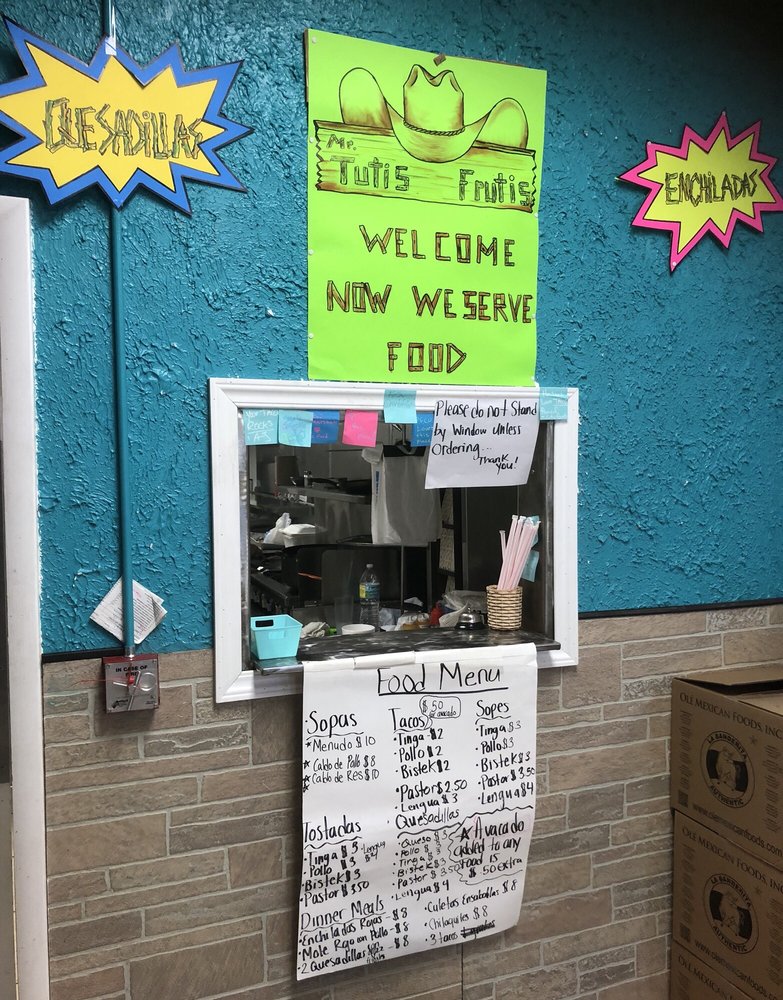 QUESADILLAS
Mr.
Tutis Frutis
WELCOME
NOW WE SERVE
FOOD
ENCHILADAS
Please do not Stand
by Window unless
Ordering...
Thank
you!
IN CASE OF
Food Menu
Sopas
* Menudo $10
* Caldo de Pollo $8
* Caldo de Res $10
Tacos
$.50
avacado
• Tinga $2
• Pollo $2
• Bistek $2
• Pastor $2.50
• Lengua $3
Sopes
• Tinga $3
• Pollo $3
• Bistek $3
• Pastor $3.50
• Lengua $4
Tostadas
• Tinga $3
• Lengua $4
• Pollo $3
• Bistek $3
• Pastor $3.50
Quesadillas
• Queso $3
• Pollo $3
• Tinga $3
• Bistek $3
• Pastor $3.50
• Lengua $4
* Avacado
added to any
food is
$.50 extra
Dinner Meals
• Enchiladas Rojas - $8
• Mole Rojo con Pollo - $8
• 2 Quesadillas - $8
• Culetas Ensaboladas $8
• Chilaquiles $8
• 3 tacos
OLE MEXICAN FOODS, INC
LA BANDERITA
AUTHENTIC
www.olemexican
OLE MEXICAN FOODS, INC.
LA BANDERITA
AUTHENTIC
www.olemexicanfoods.
OLE MEXICAN FOODS